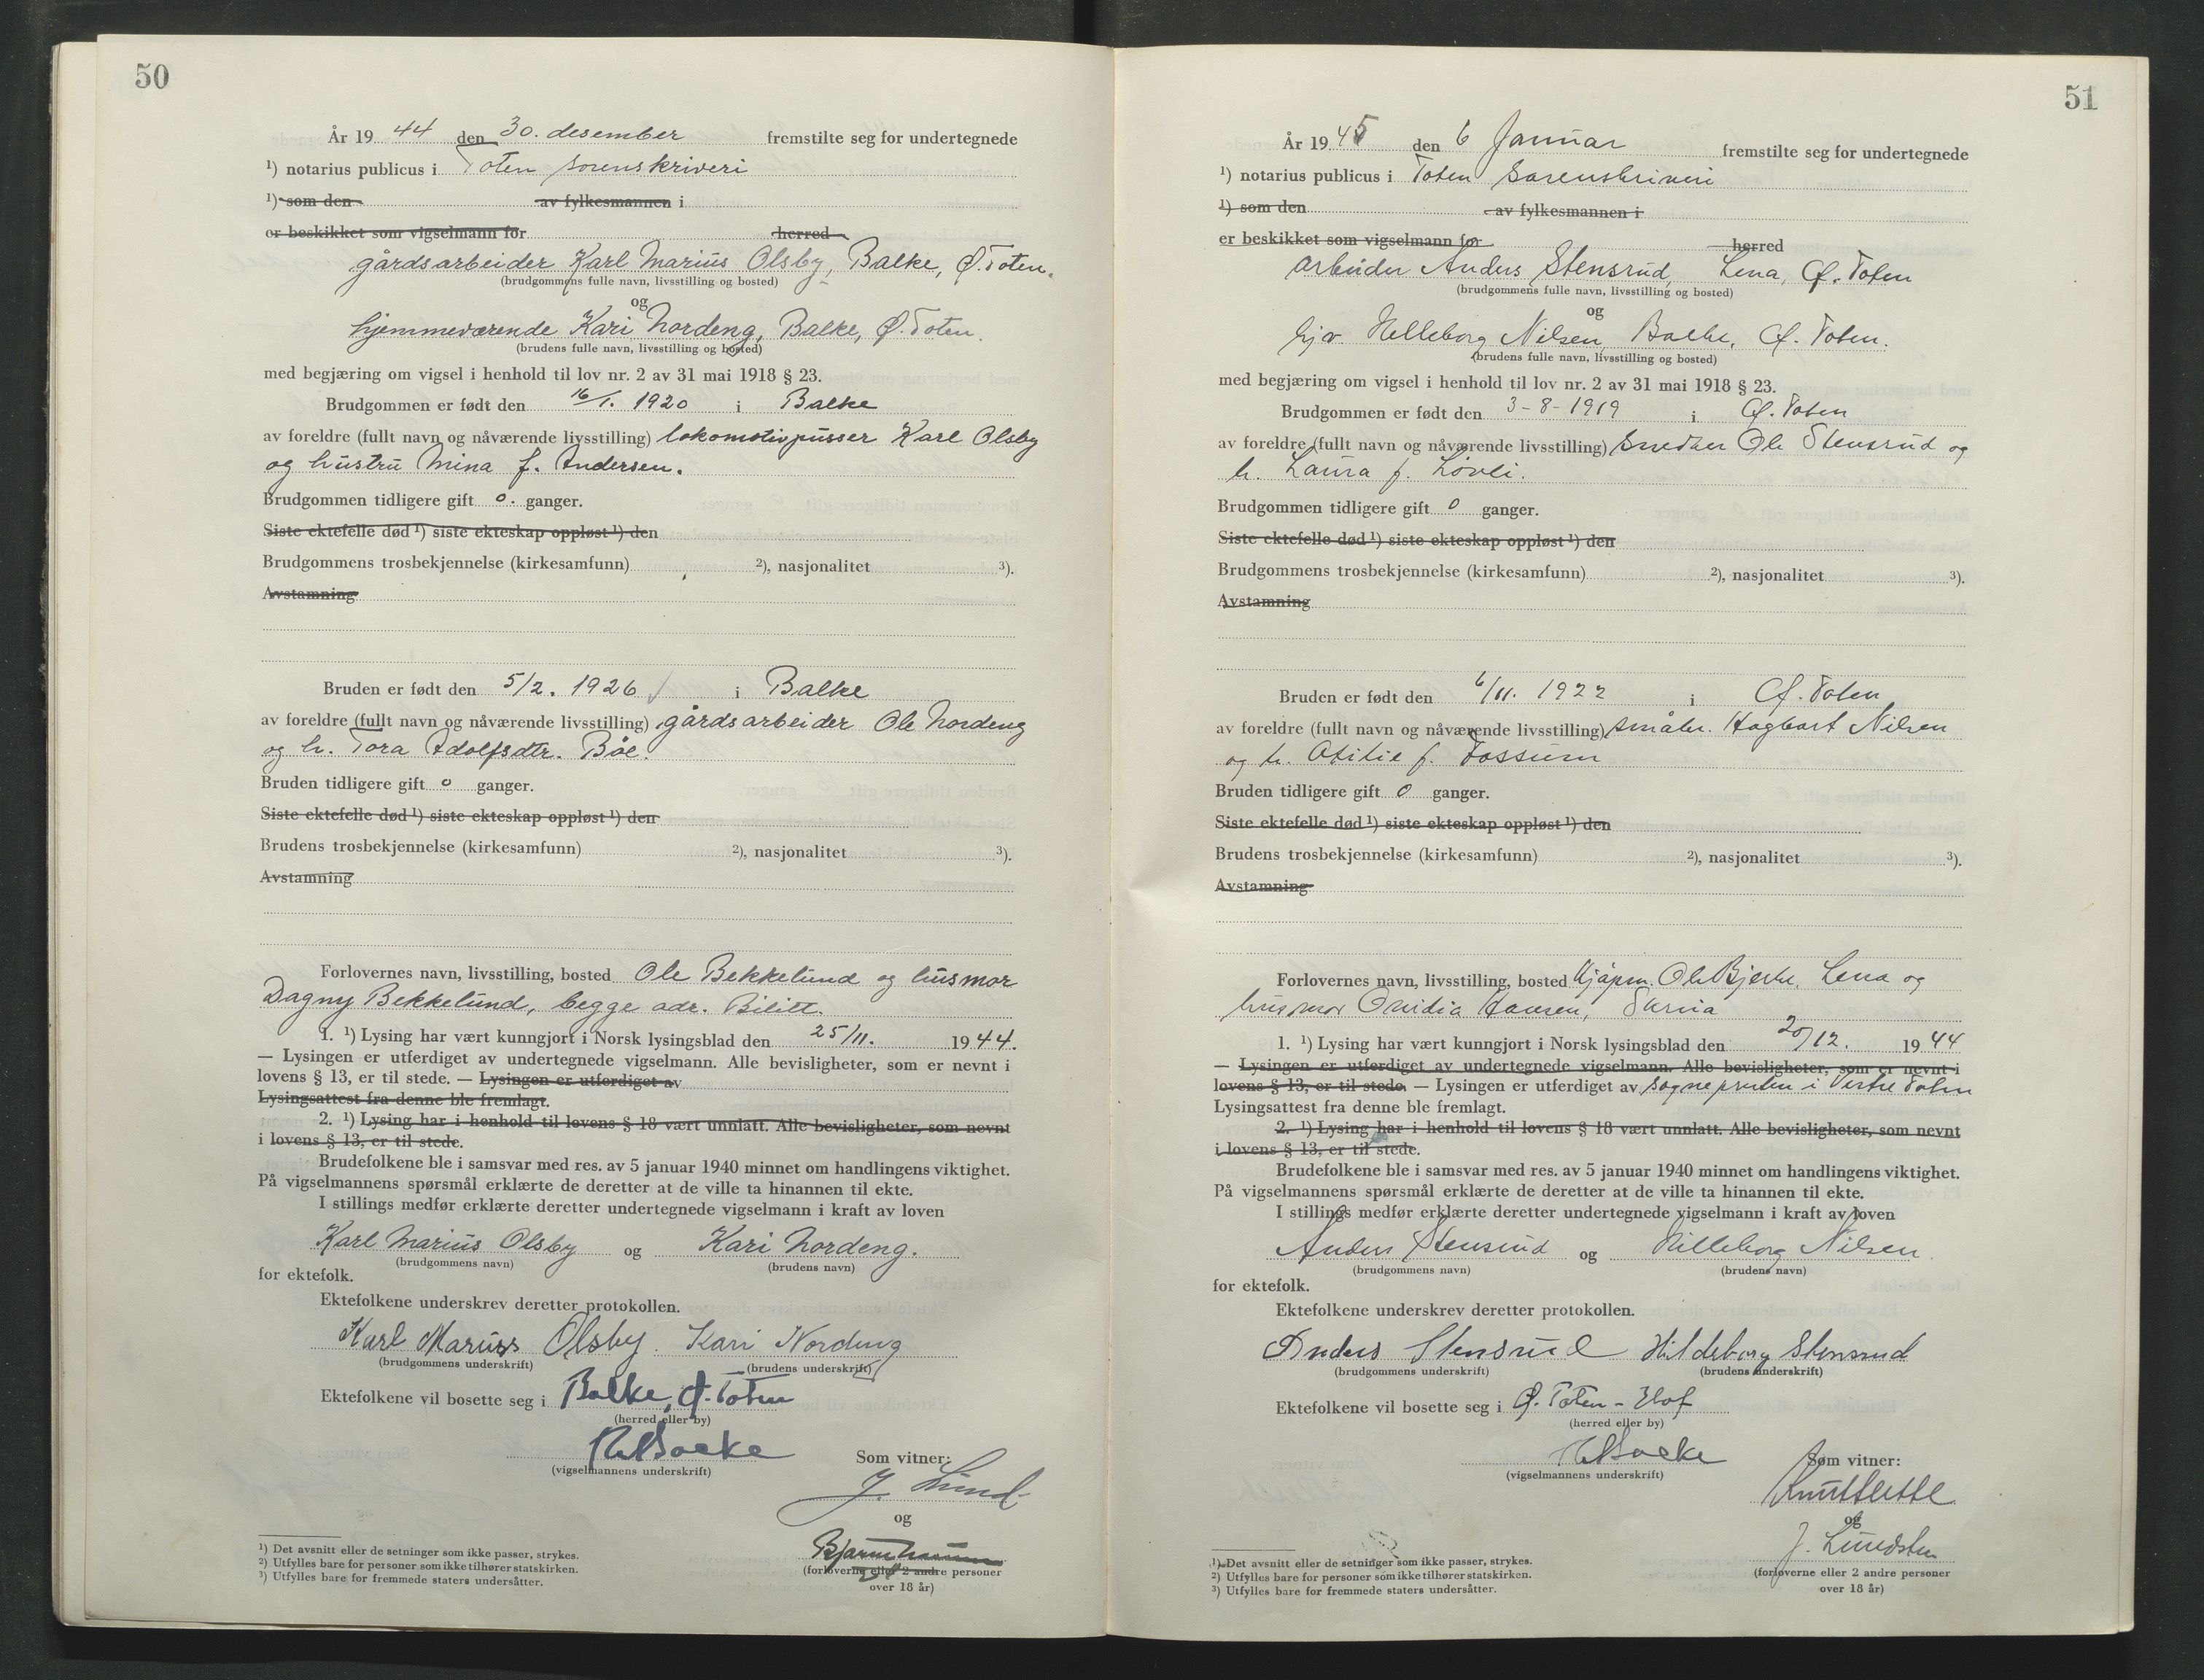 50
År 19 44 den 30. desember fremstilte seg for undertegnede
¹) notarius publicus i Toten sorenskriveri
¹) som den av fylkesmannen i
er beskikket som vigselmann for herred
gårdsarbeider Karl Marius Olsby, Balke, Ø. Toten.
(brudgommens fulle navn, livsstilling og bosted)
og
hjemmeværende Kari Nordeng, Balke, Ø. Toten.
(brudens fulle navn, livsstilling og bosted)
med begjæring om vigsel i henhold til lov nr. 2 av 31 mai 1918 § 23.
Brudgommen er født den 16/1. 1920 i Balke
av foreldre (fullt navn og nåværende livsstilling) lokomotivpusser Karl Olsby
og hustru Mina f. Andersen.
Brudgommen tidligere gift 0. ganger.
Siste ektefelle død ¹) siste ekteskap oppløst ¹) den
Brudgommens trosbekjennelse (kirkesamfunn) ²), nasjonalitet ³).
Avstamning
Bruden er født den 5/2. 1926 i Balke
av foreldre (fullt navn og nåværende livsstilling) gårdsarbeider Ole Nordeng
og h. Tora Adolfsdtr. Bøe.
Bruden tidligere gift 0 ganger.
Siste ektefelle død ¹) siste ekteskap oppløst ¹) den
Brudens trosbekjennelse (kirkesamfunn) ²), nasjonalitet ³).
Avstamning
Forlovernes navn, livsstilling, bosted Ole Bekkelund og husmor
Dagny Bekkelund, begge adr. Bilitt.
1. ¹) Lysing har vært kunngjort i Norsk lysingsblad den 25/11. 1944.
— Lysingen er utferdiget av undertegnede vigselmann. Alle bevisligheter, som er nevnt i
lovens § 13, er til stede. — Lysingen er utferdiget av
Lysingsattest fra denne ble fremlagt.
2. ¹) Lysing har i henhold til lovens § 18 vært unnlatt. Alle bevisligheter, som nevnt
i lovens § 13, er til stede.
Brudefolkene ble i samsvar med res. av 5 januar 1940 minnet om handlingens viktighet.
På vigselmannens spørsmål erklærte de deretter at de ville ta hinannen til ekte.
I stillings medfør erklærte deretter undertegnede vigselmann i kraft av loven
Karl Marius Olsby og Kari Nordeng.
(brudgommens navn) (brudens navn)
for ektefolk.
Ektefolkene underskrev deretter protokollen.
Karl Marius Olsby. Kari Nordeng
(brudgommens underskrift) (brudens underskrift)
Ektefolkene vil bosette seg i Balke, Ø. Toten
(herred eller by)
(vigselmannens underskrift)
Som vitner:
J. Lund
og
(forloverne eller 2 andre personer
over 18 år)
¹) Det avsnitt eller de setninger som ikke passer, strykes.
²) Utfylles bare for personer som ikke tilhører statskirken.
³) Utfylles bare for fremmede staters undersåtter.
51
År 19 45 den 6 Januar fremstilte seg for undertegnede
¹) notarius publicus i Toten Sorenskriveri
¹) som den av fylkesmannen i
er beskikket som vigselmann for herred
arbeider Anders Stensrud, Lena, Ø. Toten
(brudgommens fulle navn, livsstilling og bosted)
og
hjv. Helleborg Nilsen, Balke, Ø. Toten.
(brudens fulle navn, livsstilling og bosted)
med begjæring om vigsel i henhold til lov nr. 2 av 31 mai 1918 § 23.
Brudgommen er født den 3-8-1919 i Ø. Toten
av foreldre (fullt navn og nåværende livsstilling) snedker Ole Stensrud og
h. Laura f. Lövli.
Brudgommen tidligere gift 0 ganger.
Siste ektefelle død ¹) siste ekteskap oppløst ¹) den
Brudgommens trosbekjennelse (kirkesamfunn) ²), nasjonalitet ³).
Avstamning
Bruden er født den 6/11. 1922 i Ø. Toten
av foreldre (fullt navn og nåværende livsstilling) småbr. Hagbart Nilsen
og h. Otilie f. Fossum
Bruden tidligere gift 0 ganger.
Siste ektefelle død ¹) siste ekteskap oppløst ¹) den
Brudens trosbekjennelse (kirkesamfunn) ²), nasjonalitet ³).
Avstamning
Forlovernes navn, livsstilling, bosted kjøpm. Ole Bjerke, Lena og
husmor Ovidia Hansen,
1. ¹) Lysing har vært kunngjort i Norsk lysingsblad den 20/12. 1944
— Lysingen er utferdiget av undertegnede vigselmann. Alle bevisligheter, som er nevnt i
lovens § 13, er til stede. — Lysingen er utferdiget av sognepresten i Vestre Toten
Lysingsattest fra denne ble fremlagt.
2. ¹) Lysing har i henhold til lovens § 18 vært unnlatt. Alle bevisligheter, som nevnt
i lovens § 13, er til stede.
Brudefolkene ble i samsvar med res. av 5 januar 1940 minnet om handlingens viktighet.
På vigselmannens spørsmål erklærte de deretter at de ville ta hinannen til ekte.
I stillings medfør erklærte deretter undertegnede vigselmann i kraft av loven
Anders Stensrud og Hilleborg Nilsen.
(brudgommens navn) (brudens navn)
for ektefolk.
Ektefolkene underskrev deretter protokollen.
Anders Stensrud Hildeborg Stensrud
(brudgommens underskrift) (brudens underskrift)
Ektefolkene vil bosette seg i Ø. Toten - Hof
(herred eller by)
(vigselmannens underskrift)
Som vitner:
og
J. Lundsten
(forloverne eller 2 andre personer
over 18 år)
¹) Det avsnitt eller de setninger som ikke passer, strykes.
²) Utfylles bare for personer som ikke tilhører statskirken.
³) Utfylles bare for fremmede staters undersåtter.